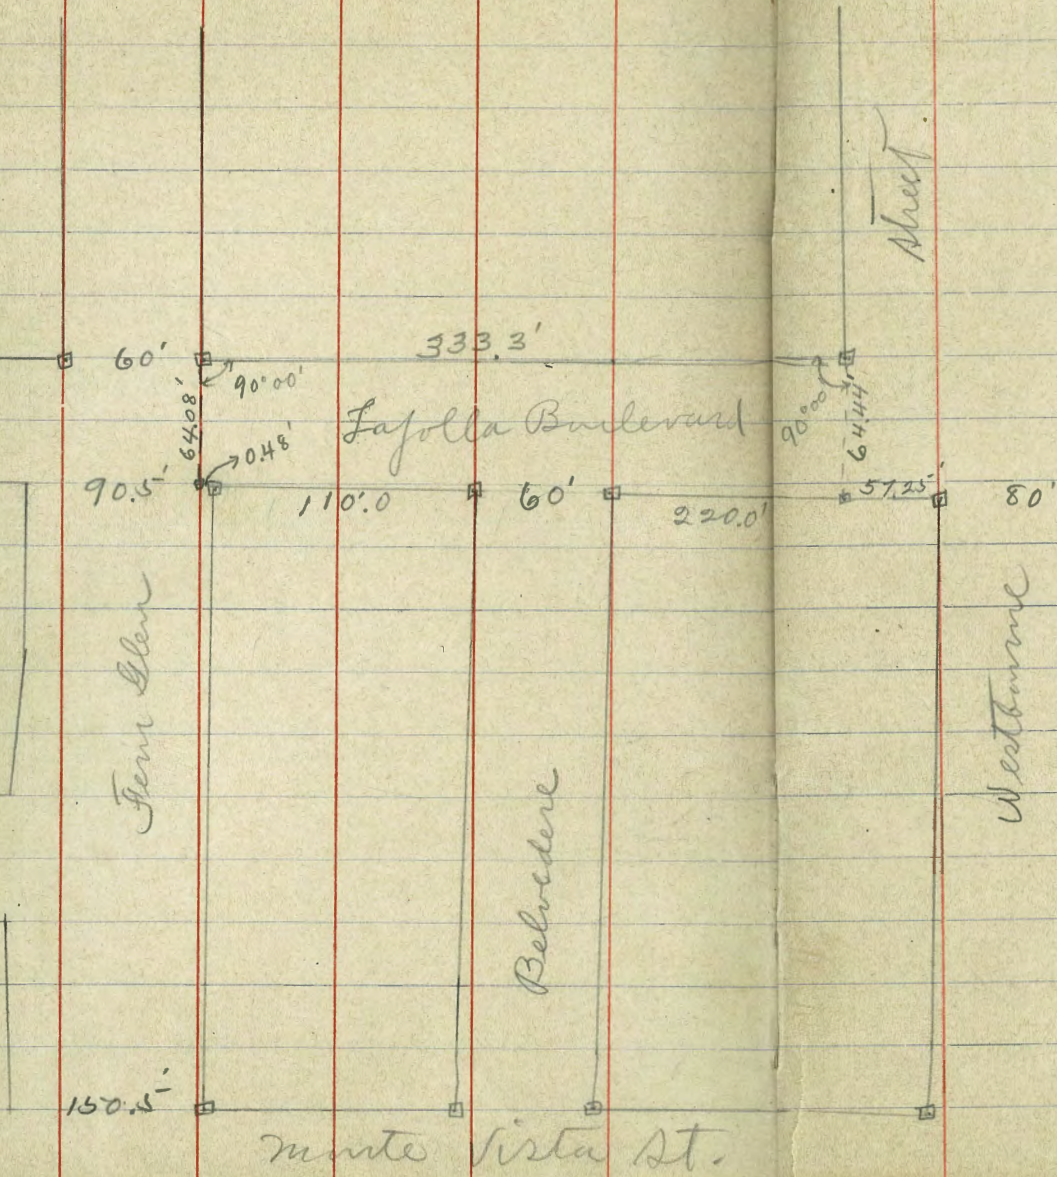 Street
60'
333.3'
90°00'
90°00'
64.08'
64.44'
Lajolla Boulevard
0.48'
90.5'
110'.0
60'
220.0'
57.25'
80'
Fern Glen
Belvedere
Westbourne
150.5'
Monte Vista St.